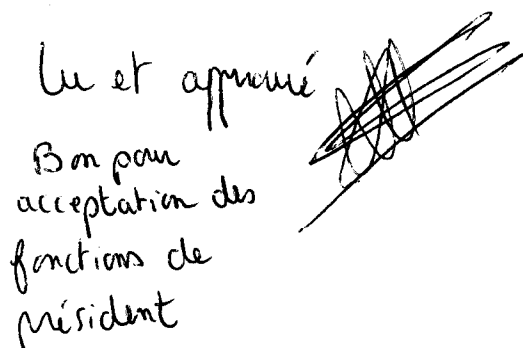 Lu et approuvé
Bon pour
acceptation des
fonctions de
président